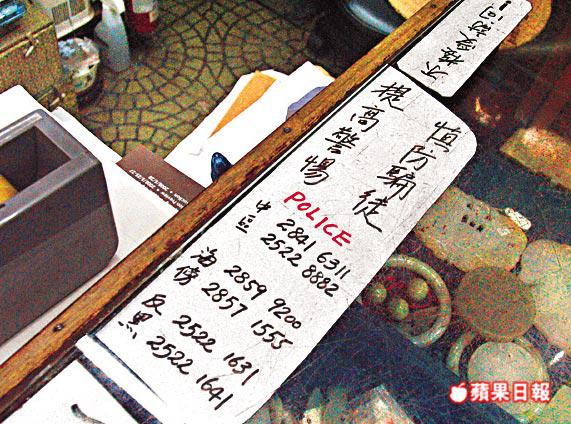 慎防騙徒
提高警惕
POLICE
中 2841 6311
區 2522 8882
海 2859 9200
傍 2857 1555
反 2522 1631
黑 2522 1641
蘋果日報